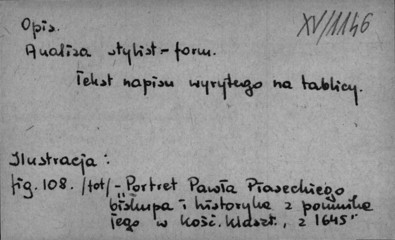 XV/1146
Opis.
Analiza stylist-form.
Tekst napisu wyrytego na tablicy.
Ilustracja:
fig. 108. /fot/ - Portret Pawła Piaseckiego
biskupa i historyka z pomnika
jego w kość. klaszt., z 1645"